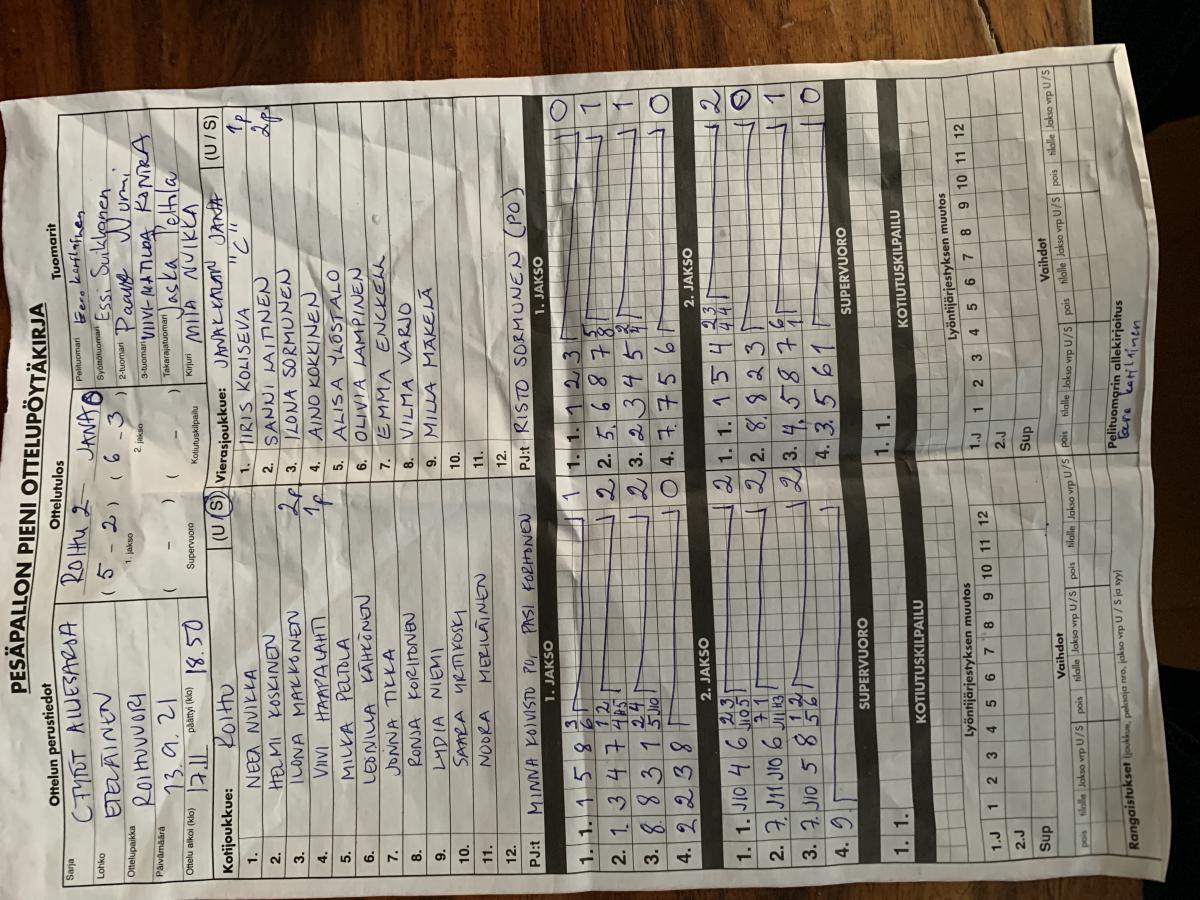 PESÄPALLON PIENI OTTELUPÖYTÄKIRJA
Ottelun perustiedot
Sarja C-TYTÖT ALUESARJA
Lohko ETELÄINEN
Ottelupaikka ROIHUVUORI
Päivämäärä 13.9.21
Ottelu alkoi (klo) 17.11 päättyi (klo) 18.50
Ottelutulos
ROIHU 2 - JANA 0
( 5 - 2 ) ( 6 - 3 )
1. jakso 2. jakso
( - ) ( - )
Supervuoro Kotiutuskilpailu
Tuomarit
Pelituomari Eero Karilainen
Syöttötuomari Essi Suikkanen
2-tuomari Paavo Nurmi
3-tuomari VIIVI-MATILDA KONTRA
Takarajatuomari Jaska Peltola
Kirjuri MIIA NUIKKA
Kotijoukkue: ROIHU (U / S)
1. NEEA NUIKKA
2. HELMI KOSKINEN
3. ILONA MAKKONEN 2p
4. VIIVI HAAPALAHTI 1p
5. MILKA PELTOLA
6. LEONILIA KÄHKÖNEN
7. JONNA TIKKA
8. RONJA KORHONEN
9. LYDIA NIEMI
10. SAARA YRTIKOSKI
11. NOORA MERILÄINEN
12.
PJ:t MINNA KOIVISTO PO, PASI KORHONEN
Vierasjoukkue: JANAKKALAN JANA (U / S)
1. IIRIS KOLISEVA "C" 1p
2. SANNI LAITINEN 2p.
3. ILONA SORMUNEN
4. AINO KOKKINEN
5. ALISA YLÖSTALO
6. OLIVIA LAMPINEN
7. EMMA ENCKELL
8. VILMA VARJO
9. MILLA MÄKELÄ
10.
11.
12.
PJ:t RISTO SORMUNEN (PO)
1. JAKSO
1. 1. 1 5 8 6 3 1
2. 1. 3 4 7 2
3. 8. 8 3 1 2
4. 2 2 3 8 0
2. JAKSO
1. 1. J10 4 6 2
2. 7. J11 J10 6 2
3. 7. J10 5 8 2
4. 9.
SUPERVUORO
1. 1.
KOTIUTUSKILPAILU
1. JAKSO
1. 1. 1 2 3 0
2. 5. 6 8 7 1
3. 2. 3 4 5 1
4. 7. 7 5 6 0
2. JAKSO
1. 1. 1 5 4 2
2. 8. 8 2 3 0
3. 4. 5 8 7 1
4. 3. 5 6 1 0
SUPERVUORO
1. 1.
KOTIUTUSKILPAILU
Lyöntijärjestyksen muutos
1.J 1 2 3 4 5 6 7 8 9 10 11 12
2.J
Sup
Vaihdot
pois tilalle Jakso vrp U / S pois tilalle Jakso vrp U / S pois tilalle Jakso vrp U / S
Lyöntijärjestyksen muutos
1.J 1 2 3 4 5 6 7 8 9 10 11 12
2.J
Sup
Vaihdot
pois tilalle Jakso vrp U / S pois tilalle Jakso vrp U / S pois tilalle Jakso vrp U / S
Rangaistukset (joukkue, pelaaja nro, jakso vrp U / S ja syy)
Pelituomarin allekirjoitus
Eero Karilainen